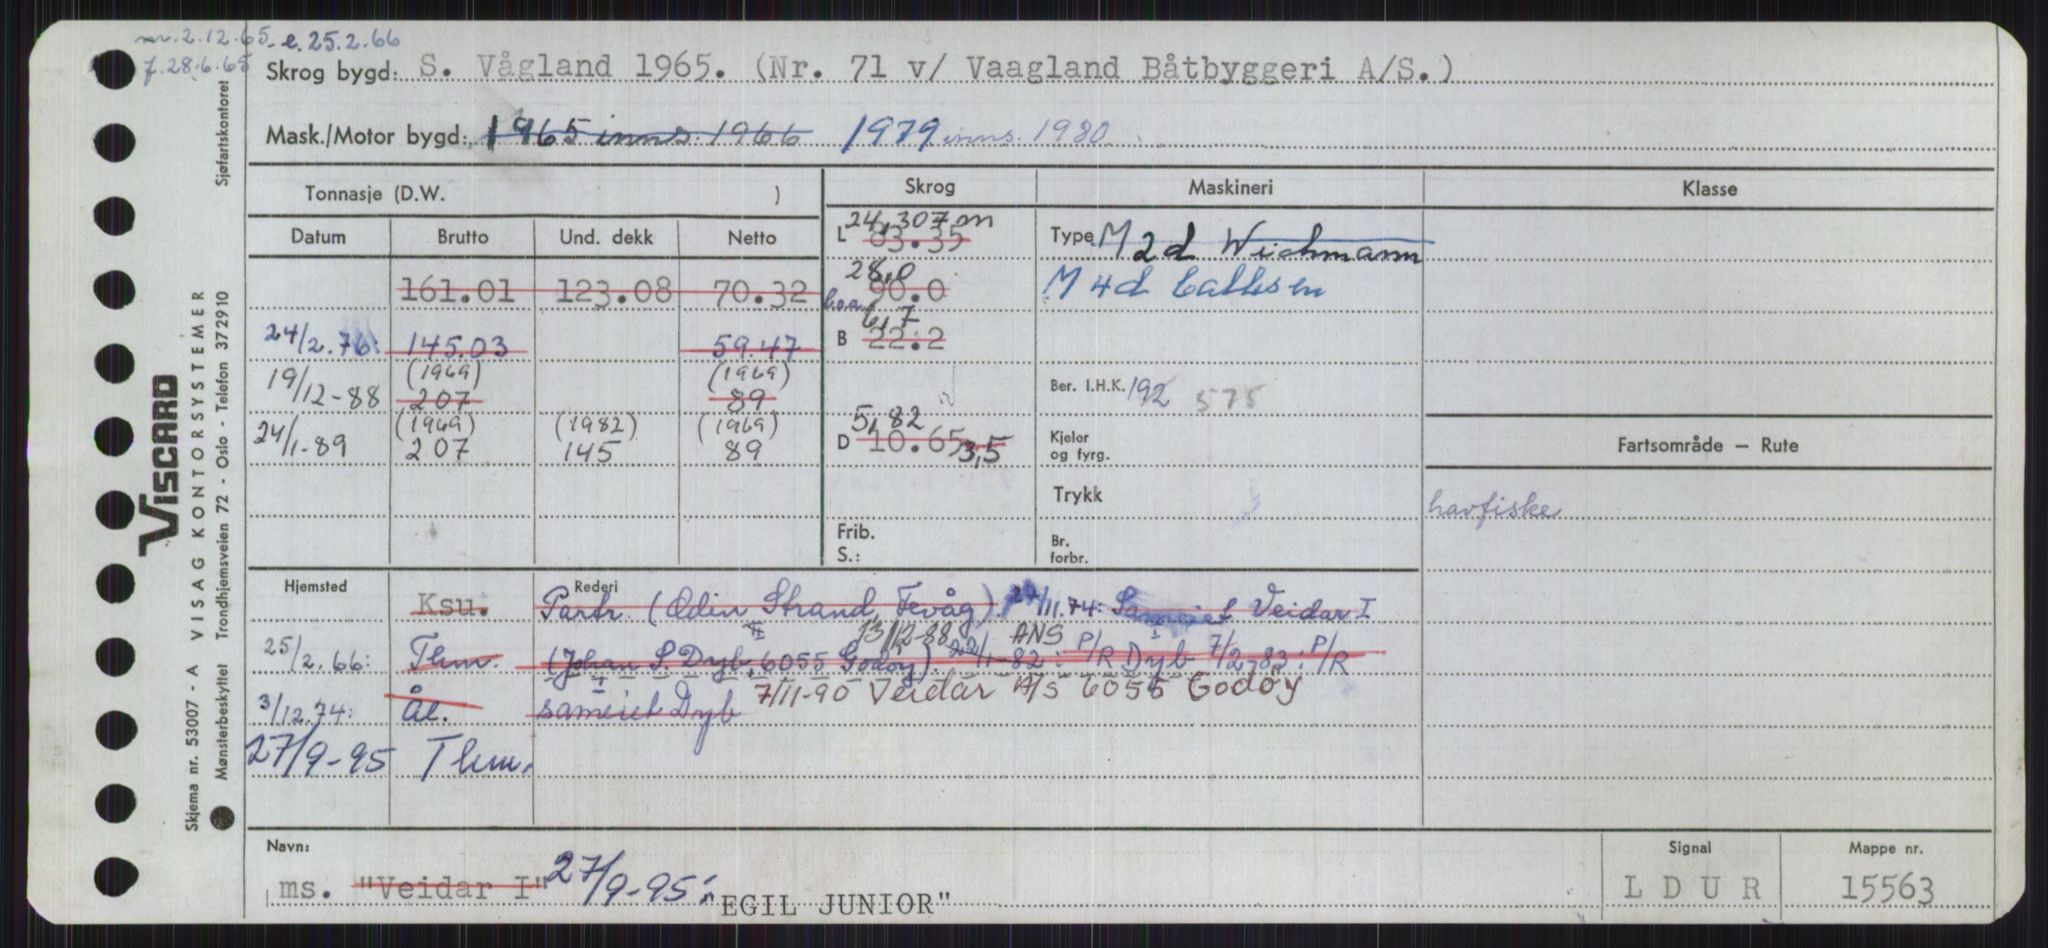 nr. 2.12.65. e. 25.2.66
f. 28.6.65
Skrog bygd: S. Vågland 1965. (Nr. 71 v/ Vaagland Båtbyggeri A/S.)
Mask./Motor bygd: 1965 inns. 1966 1979 inns. 1980
Tonnasje (D.W. )
Skrog
Maskineri
Klasse
Datum Brutto Und. dekk Netto
24,307 m
L 83.35
Type M 2d Wichmann
161.01 123.08 70.32
28,0
l.o.a. 90.0
M 4d Callesen
24/2.76: 145.03 59.47
6,7
B 22.2
19/12-88 (1969) 207 (1969) 89
Ber. I.H.K. 192 575
24/1-89 (1969) 207 (1982) 145 (1969) 89
5,82
D 10.65 3,5
Kjeler og fyrg.
Fartsområde – Rute
Trykk
havfiske
Frib. S.:
Br. forbr.
Hjemsted
Rederi
Ksu. Partr (Odin Strand, Fevåg). 11.74: Sameiet Veidar I
13/12-88 ANS
25/2.66: Thm. (Johan S. Dyb, 6055 Godøy). 22/1-82: P/R Dyb 7/2-83: P/R
3/12.74: Ål. sameiet Dyb 7/11-90 Veidar A/S 6055 Godøy
27/9-95 Thm.
Navn:
ms. "Veidar I" 27/9-95: "EGIL JUNIOR"
Signal
L D U R
Mappe nr.
15563
VISCARD
A VISAG KONTORSYSTEMER
Skjema nr. 53007 - A
Mønsterbeskyttet Trondhjemsveien 72 - Oslo - Telefon 372910 Sjøfartskontoret